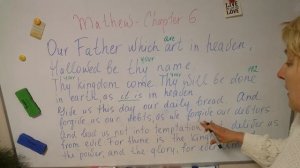 LIVE
LOVE
Mathew - Chapter 6
are
Our Father which art in heaven,
your
Hallowed be thy name.
your your
Thy kingdom come. Thy will be done
in earth, as it is in heaven.
Give us this day our daily bread. And
forgive us our debts, as we forgive our debtors
And lead us not into temptation, deliver us
from evil: For thine is the kingdom
the power, and the glory, for